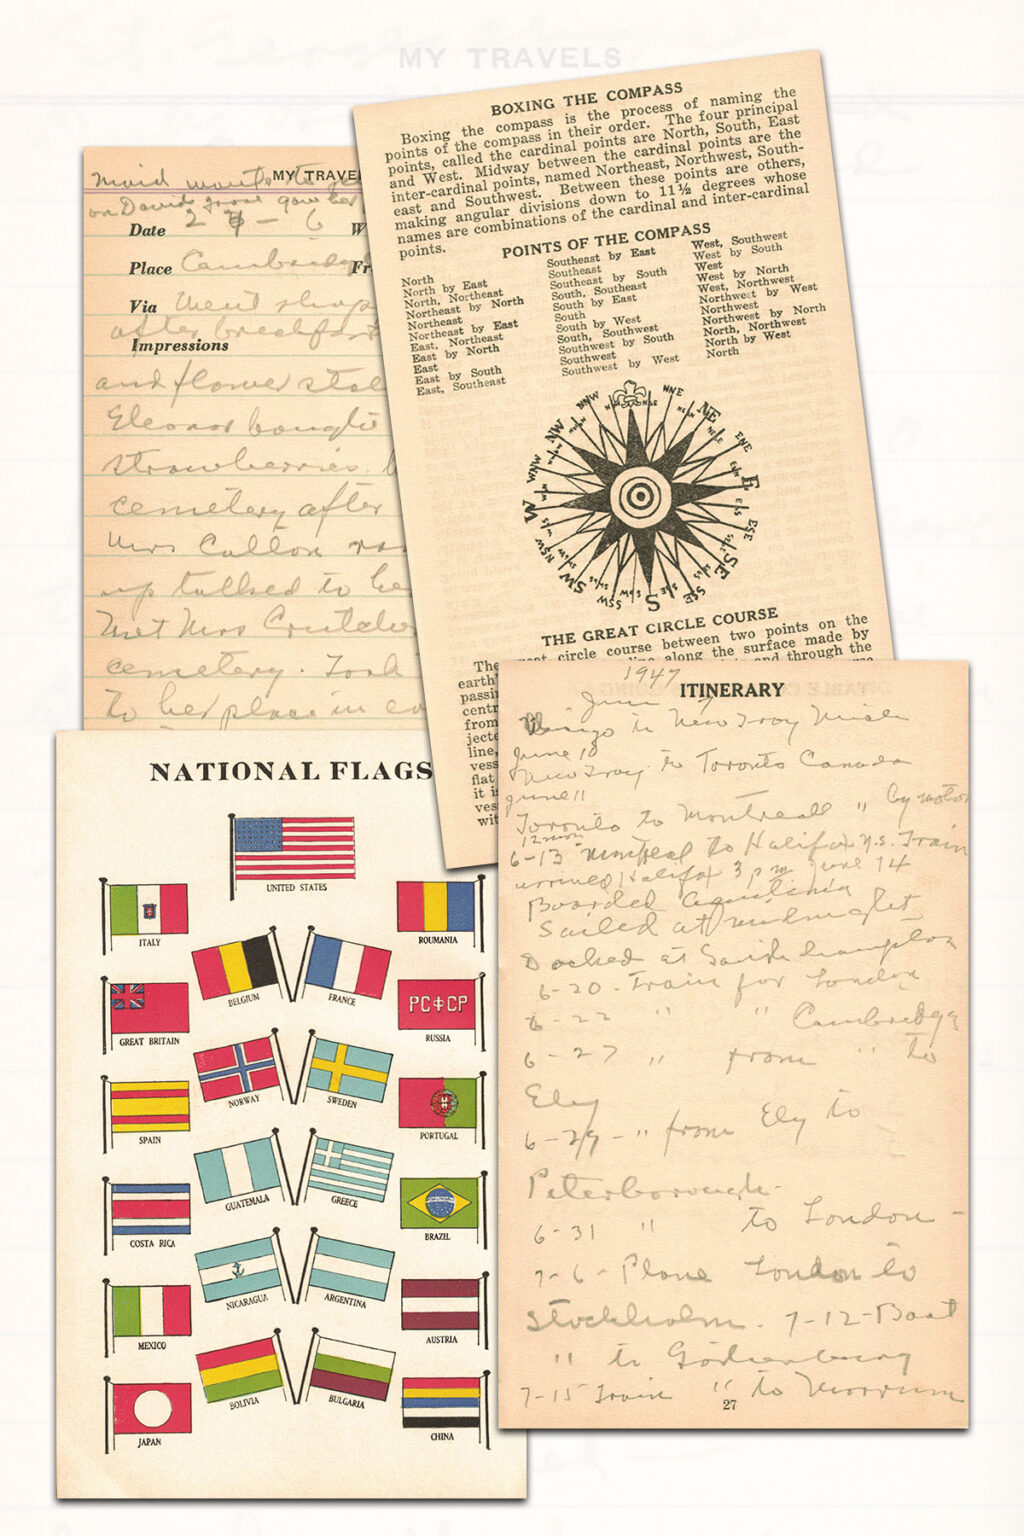 MY TRAVELS
BOXING THE COMPASS
Boxing the compass is the process of naming the
points of the compass in their order. The four principal
points, called the cardinal points are North, South, East
and West. Midway between the cardinal points are the
inter-cardinal points, named Northeast, Northwest, South-
east and Southwest. Between these points are others,
making angular divisions down to 11½ degrees whose
names are combinations of the cardinal and inter-cardinal
points.
POINTS OF THE COMPASS
North
North by East
North, Northeast
Northeast by North
Northeast
Northeast by East
East, Northeast
East by North
East
East by South
East, Southeast
Southeast by East
Southeast
Southeast by South
South, Southeast
South by East
South
South by West
South, Southwest
Southwest by South
Southwest
Southwest by West
West, Southwest
West by South
West
West by North
West, Northwest
Northwest by West
Northwest
Northwest by North
North, Northwest
North by West
North
NNE
NE
ENE
E
ESE
SE
SSE
S
SSW
SW
WSW
W
WNW
NW
NNW
THE GREAT CIRCLE COURSE
The great circle course between two points on the
earth line along the surface made by
passi and through the
centr
from
jecte
line,
vess
flat
it is
ves
wit
MY TRAVEL
maid wants to
on Davids gave her
Date 2 - 6 W
Place Cambridge Fr
Via Went shop
after breakfast
Impressions
and flower stal
Eleanor bought
strawberries.
cemetery after
Mrs Callon
up talked to he
Met Mrs
cemetery. Took
to her place in
NATIONAL FLAGS
UNITED STATES
ITALY
ROUMANIA
BELGIUM
FRANCE
GREAT BRITAIN
РСФСР
RUSSIA
NORWAY
SWEDEN
SPAIN
PORTUGAL
GUATEMALA
GREECE
COSTA RICA
BRAZIL
NICARAGUA
ARGENTINA
MEXICO
AUSTRIA
BOLIVIA
BULGARIA
JAPAN
CHINA
1947
ITINERARY
June 7
to New Troy Mich
June 10
New Troy to Toronto Canada
June 11
Toronto to Montreall " by motor
12 noon
6-13 Montreal to Halifax N.S. Train
arrived Halifax 3 pm June 14
Boarded Aquitania
Sailed at midnight
Docked at Southampton
6-20 - Train for London
6-22 " " Cambridge
6-27 " from " to
Eley
6-29 - " from Ely to
Peterborough -
6-31 " to London -
7-6 - Plane London to
Stockholm. 7-12-Boat
" to Gothenburg
7-15 Train " to Morrum
27